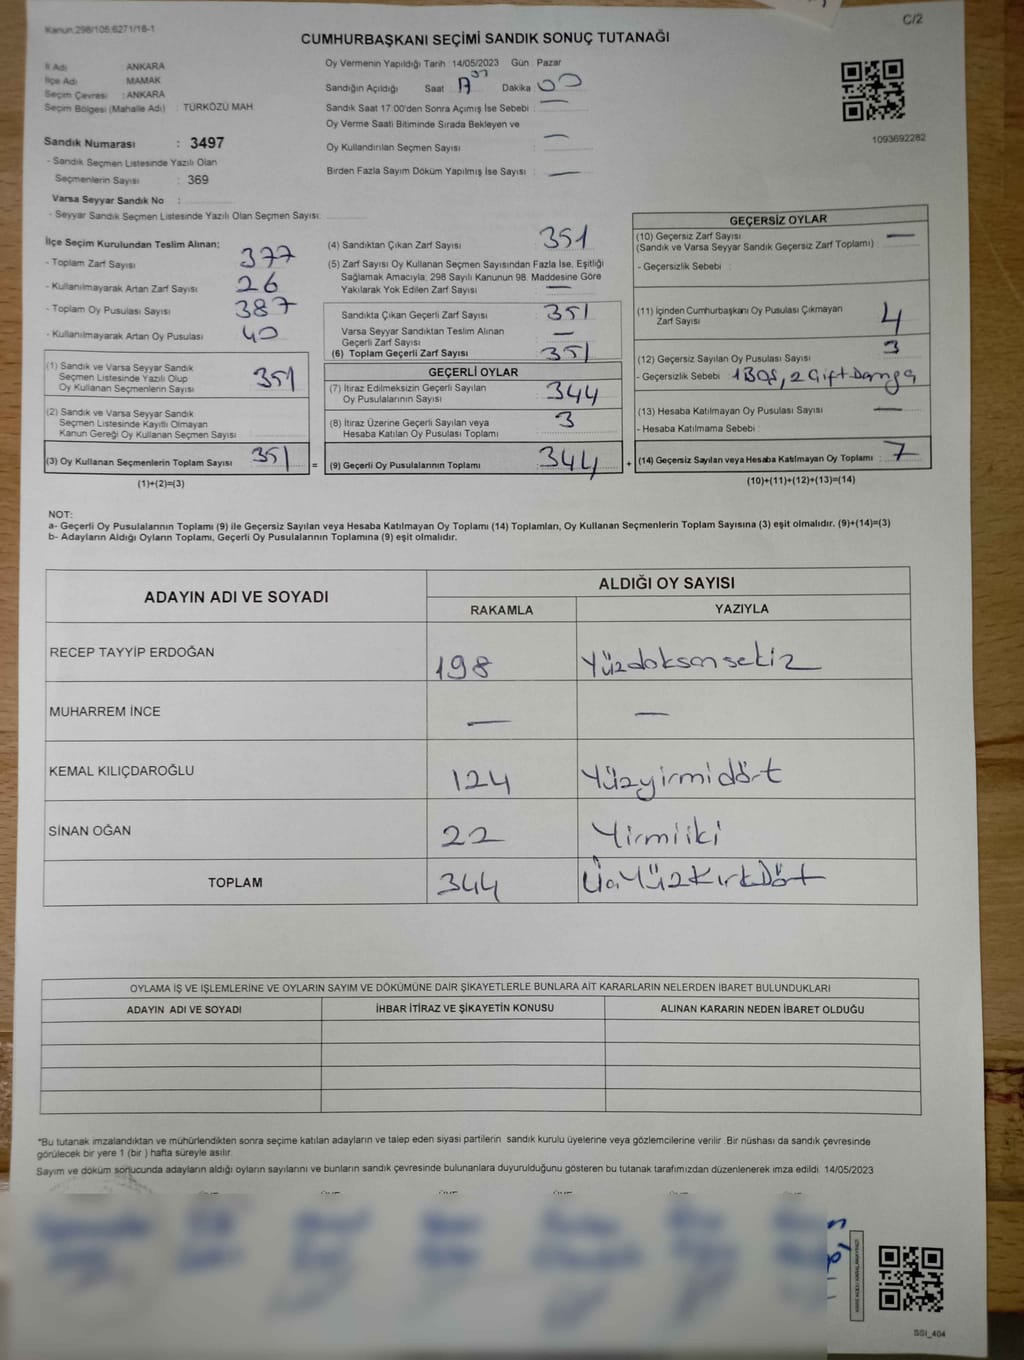 Kanun.298/105;6271/18-1
C/2
CUMHURBAŞKANI SEÇİMİ SANDIK SONUÇ TUTANAĞI
İl Adı : ANKARA
İlçe Adı : MAMAK
Seçim Çevresi : ANKARA
Seçim Bölgesi (Mahalle Adı) : TÜRKÖZÜ MAH.
Oy Vermenin Yapıldığı Tarih : 14/05/2023 Gün : Pazar
Sandığın Açıldığı Saat Dakika : 00
Sandık Saat 17.00'den Sonra Açımış İse Sebebi : —
Oy Verme Saati Bitiminde Sırada Bekleyen ve
Oy Kullandırılan Seçmen Sayısı : —
Birden Fazla Sayım Döküm Yapılmış İse Sayısı : —
1093692282
Sandık Numarası : 3497
- Sandık Seçmen Listesinde Yazılı Olan
Seçmenlerin Sayısı : 369
Varsa Seyyar Sandık No :
- Seyyar Sandık Seçmen Listesinde Yazılı Olan Seçmen Sayısı:
İlçe Seçim Kurulundan Teslim Alınan;
- Toplam Zarf Sayısı : 377
- Kullanılmayarak Artan Zarf Sayısı : 26
- Toplam Oy Pusulası Sayısı : 387
- Kullanılmayarak Artan Oy Pusulası : 40
(1) Sandık ve Varsa Seyyar Sandık
Seçmen Listesinde Yazılı Olup
Oy Kullanan Seçmenlerin Sayısı : 351
(2) Sandık ve Varsa Seyyar Sandık
Seçmen Listesinde Kayıtlı Olmayan
Kanun Gereği Oy Kullanan Seçmen Sayısı :
(3) Oy Kullanan Seçmenlerin Toplam Sayısı : 351 =
(1)+(2)=(3)
(4) Sandıktan Çıkan Zarf Sayısı : 351
(5) Zarf Sayısı Oy Kullanan Seçmen Sayısından Fazla İse, Eşitliği
Sağlamak Amacıyla, 298 Sayılı Kanunun 98. Maddesine Göre
Yakılarak Yok Edilen Zarf Sayısı : —
Sandıkta Çıkan Geçerli Zarf Sayısı : 351
Varsa Seyyar Sandıktan Teslim Alınan
Geçerli Zarf Sayısı : —
(6) Toplam Geçerli Zarf Sayısı : 351
GEÇERLİ OYLAR
(7) İtiraz Edilmeksizin Geçerli Sayılan
Oy Pusulalarının Sayısı : 344
(8) İtiraz Üzerine Geçerli Sayılan veya
Hesaba Katılan Oy Pusulası Toplamı : 3
(9) Geçerli Oy Pusulalarının Toplamı : 344 +
GEÇERSİZ OYLAR
(10) Geçersiz Zarf Sayısı : —
(Sandık ve Varsa Seyyar Sandık Geçersiz Zarf Toplamı)
- Geçersizlik Sebebi :
(11) İçinden Cumhurbaşkanı Oy Pusulası Çıkmayan
Zarf Sayısı : 4
(12) Geçersiz Sayılan Oy Pusulası Sayısı : 3
- Geçersizlik Sebebi : 1 BOŞ, 2 Çift Damga
(13) Hesaba Katılmayan Oy Pusulası Sayısı : —
- Hesaba Katılmama Sebebi :
(14) Geçersiz Sayılan veya Hesaba Katılmayan Oy Toplamı : 7
(10)+(11)+(12)+(13)=(14)
NOT:
a- Geçerli Oy Pusulalarının Toplamı (9) ile Geçersiz Sayılan veya Hesaba Katılmayan Oy Toplamı (14) Toplamları, Oy Kullanan Seçmenlerin Toplam Sayısına (3) eşit olmalıdır. (9)+(14)=(3)
b- Adayların Aldığı Oyların Toplamı, Geçerli Oy Pusulalarının Toplamına (9) eşit olmalıdır.
ADAYIN ADI VE SOYADI ALDIĞI OY SAYISI
RAKAMLA YAZIYLA
RECEP TAYYİP ERDOĞAN 198 Yüzdoksansekiz
MUHARREM İNCE — —
KEMAL KILIÇDAROĞLU 124 Yüzyirmidört
SİNAN OĞAN 22 Yirmiiki
TOPLAM 344 ÜçYüzKırkDört
OYLAMA İŞ VE İŞLEMLERİNE VE OYLARIN SAYIM VE DÖKÜMÜNE DAİR ŞİKAYETLERLE BUNLARA AİT KARARLARIN NELERDEN İBARET BULUNDUKLARI
ADAYIN ADI VE SOYADI İHBAR İTİRAZ VE ŞİKAYETİN KONUSU ALINAN KARARIN NEDEN İBARET OLDUĞU
*Bu tutanak imzalandıktan ve mühürlendikten sonra seçime katılan adayların ve talep eden siyasi partilerin sandık kurulu üyelerine veya gözlemcilerine verilir. Bir nüshası da sandık çevresinde
görülecek bir yere 1 (bir ) hafta süreyle asılır.
Sayım ve döküm sonucunda adayların aldığı oyların sayılarını ve bunların sandık çevresinde bulunanlara duyurulduğunu gösteren bu tutanak tarafımızdan düzenlenerek imza edildi. 14/05/2023
SSI_404